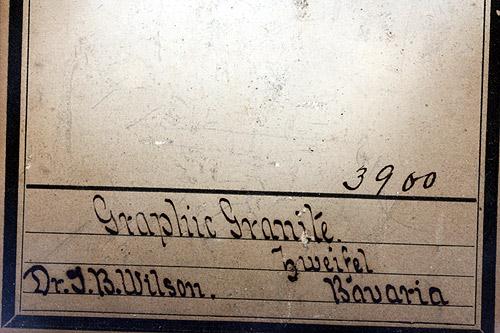 3900
Graphic Granite.
Zweifel
Dr. J. B. Wilson. Bavaria